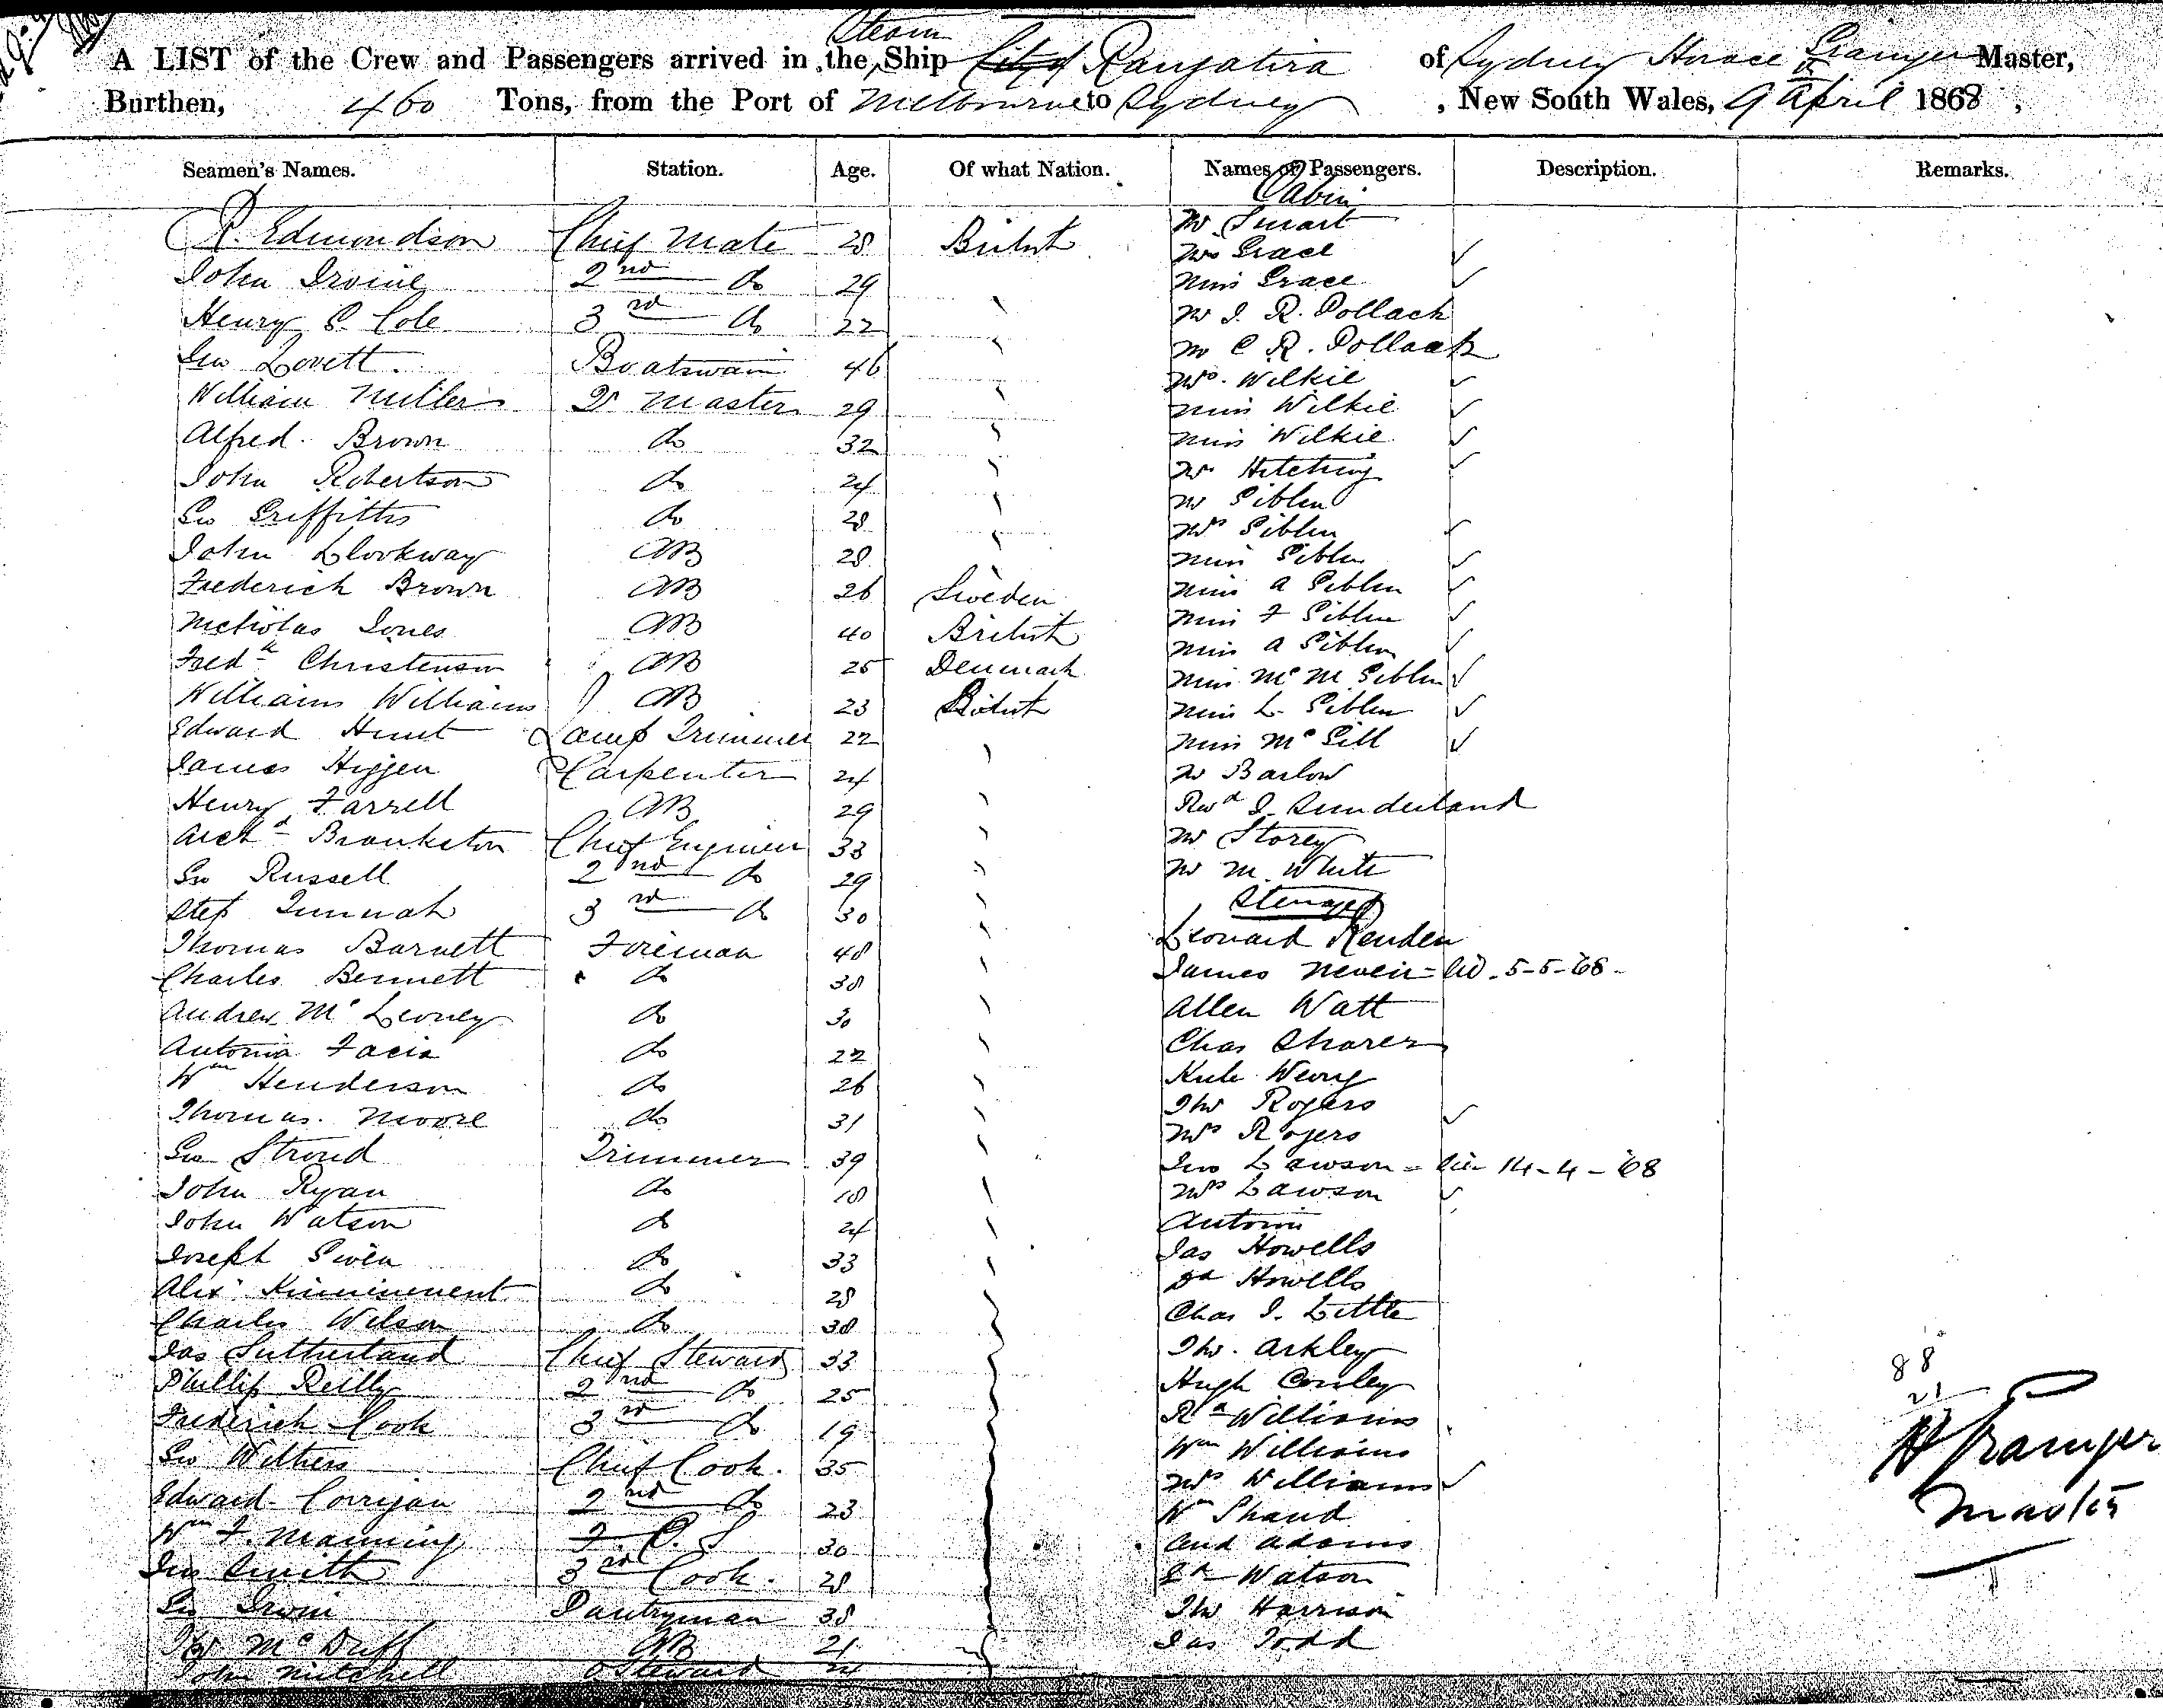 Steam
A LIST of the Crew and Passengers arrived in the Ship City of Rangatira of Sydney Horace Grainger Master,
Burthen, 460 Tons, from the Port of Melbourne to Sydney, New South Wales, 9 April 1868,
Seamen's Names. Station. Age. Of what Nation. Names of Passengers. Description. Remarks.
Cabin
R. Edmondson Chief Mate 28 British
John Irvine 2nd do 29
Henry S. Cole 3rd do 22
Geo Lovett Boatswain 46
William Miller Qr Master 29
Alfred Brown do 32
John Robertson do 24
Geo Griffiths do 28
John AB 28
Frederick Brown AB 26 Sweden
Nicholas Jones AB 40 British
Fredk Christenson AB 25 Denmark
William Williams AB 23 British
Edward Hunt Lamp Trimmer 22
James Higgen Carpenter 24
Henry Farrell AB 29
Archd Brankston Chief Engineer 33
Geo Russell 2nd do 29
Step 3rd do 30
Thomas Barnett Fireman 48
Charles Bennett do 38
Andrew Mc do 30
Antonia Facia do 22
Wm Henderson do 26
Thomas Moore do 31
Geo Stroud Trimmer 39
John Ryan do 18
John Watson do 24
Joseph do 33
Alex do 28
Charles Wilson do 38
Jas Sutherland Chief Steward 33
Phillip Reilly 2nd do 25
Frederick Cook 3rd do 19
Geo Withers Chief Cook. 35
Edward Corrigan 2nd do 23
Wm F. Manning F. C. S 30
Jno Smith 3rd Cook. 28
Geo Irvin Pantryman 38
Mc Duff AB 21
John Mitchell Steward 24
Mr Smart
Mrs Grace
Miss Grace
Mr J. R. Pollack
Mr C R. Pollack
Mrs. Wilkie
Miss Wilkie
Miss Wilkie
Mr Hitching
Mr Siblen
Mrs Siblen
Miss Siblen
Miss A Siblen
Miss F Siblen
Miss A Siblen
Miss Mc M Siblen
Miss L. Siblen
Miss Mc Gill
Mr Barlow
Revd J. Sunderland
Mr Storey
Mr M. White
Steerage
Leonard Renden
James Nevein = 5-5-68
Allen Watt
Chas Sharer
Weong
Thos Rogers
Mrs Rogers
Jno Lawson = 14-4-68
Mrs Lawson
Antoni
Jas Howells
Howells
Chas J. Little
Thos. Arkley
Hugh Conley
Rd Williams
Wm Williams
Mrs Williams
Wm Shand
And Adams
Watson
Thos Harrison
Jas Todd
88
21
H Grainger
Master